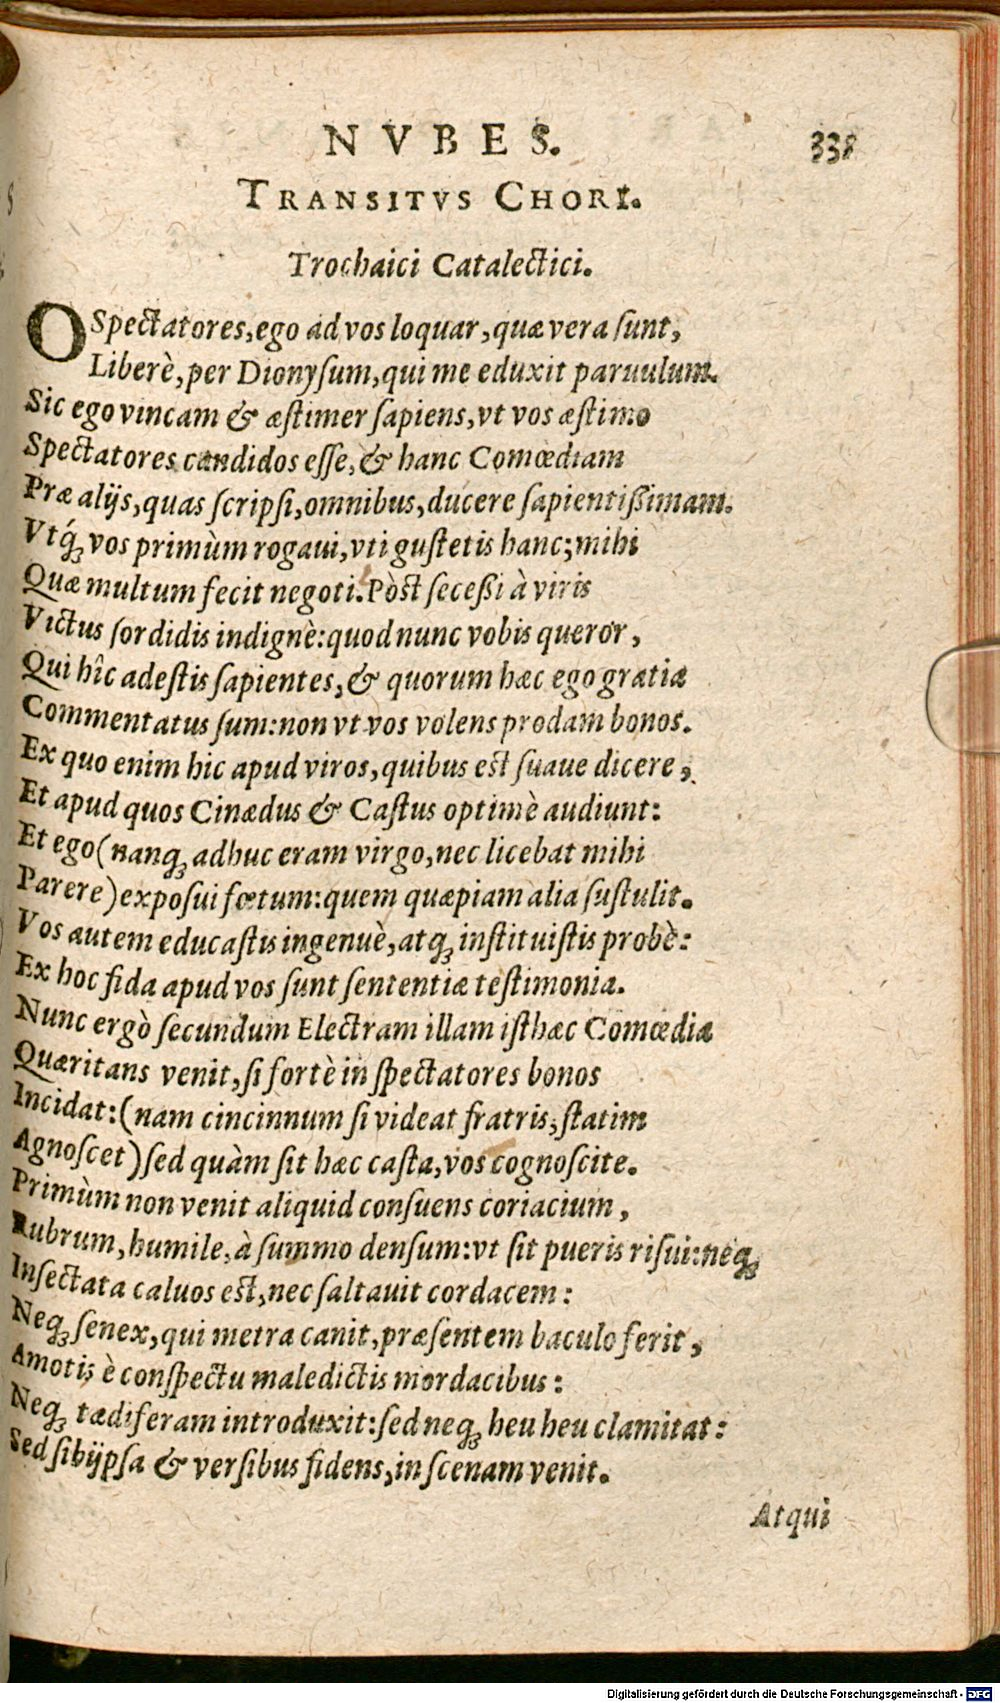 NVBES. 338
TRANSITVS CHORI.
Trochaici Catalectici.
O Spectatores, ego ad vos loquar, quæ vera ſunt,
Liberè, per Dionyſum, qui me eduxit paruulum.
Sic ego vincam & æſtimer ſapiens, vt vos æſtimo
Spectatores candidos eſſe, & hanc Comœdiam
Præ alijs, quas ſcripſi, omnibus, ducere ſapientiſſimam.
Vtq́ꝫ vos primùm rogaui, vti guſtetis hanc; mihi
Quæ multum fecit negoti. Pòſt ſeceſſi à viris
Victus ſordidis indignè: quod nunc vobis queror,
Qui hîc adeſtis ſapientes, & quorum hæc ego gratiæ
Commentatus ſum: non vt vos volens prodam bonos.
Ex quo enim hic apud viros, quibus eſt ſuaue dicere,
Et apud quos Cinædus & Caſtus optimè audiunt:
Et ego (nanqꝫ adhuc eram virgo, nec licebat mihi
Parere) expoſui fœtum: quem quæpiam alia ſuſtulit.
Vos autem educaſtis ingenuè, atqꝫ inſtituiſtis probè:
Ex hoc fida apud vos ſunt ſententiæ teſtimonia.
Nunc ergò ſecundum Electram illam iſthæc Comœdiæ
Quæritans venit, ſi fortè in ſpectatores bonos
Incidat: (nam cincinnum ſi videat fratris, ſtatim
Agnoſcet) ſed quàm ſit hæc caſta, vos cognoſcite.
Primùm non venit aliquid conſuens coriacium,
Rubrum, humile, à ſummo denſum: vt ſit pueris riſui: neqꝫ
Inſectata caluos eſt, nec ſaltauit cordacem:
Neqꝫ ſenex, qui metra canit, præſentem baculo ferit,
Amotis è conſpectu maledictis mordacibus:
Neqꝫ tædiferam introduxit: ſed neqꝫ heu heu clamitat:
Sed ſibijpſa & verſibus fidens, in ſcenam venit.
Atqui
Digitalisierung gefördert durch die Deutsche Forschungsgemeinschaft - DFG